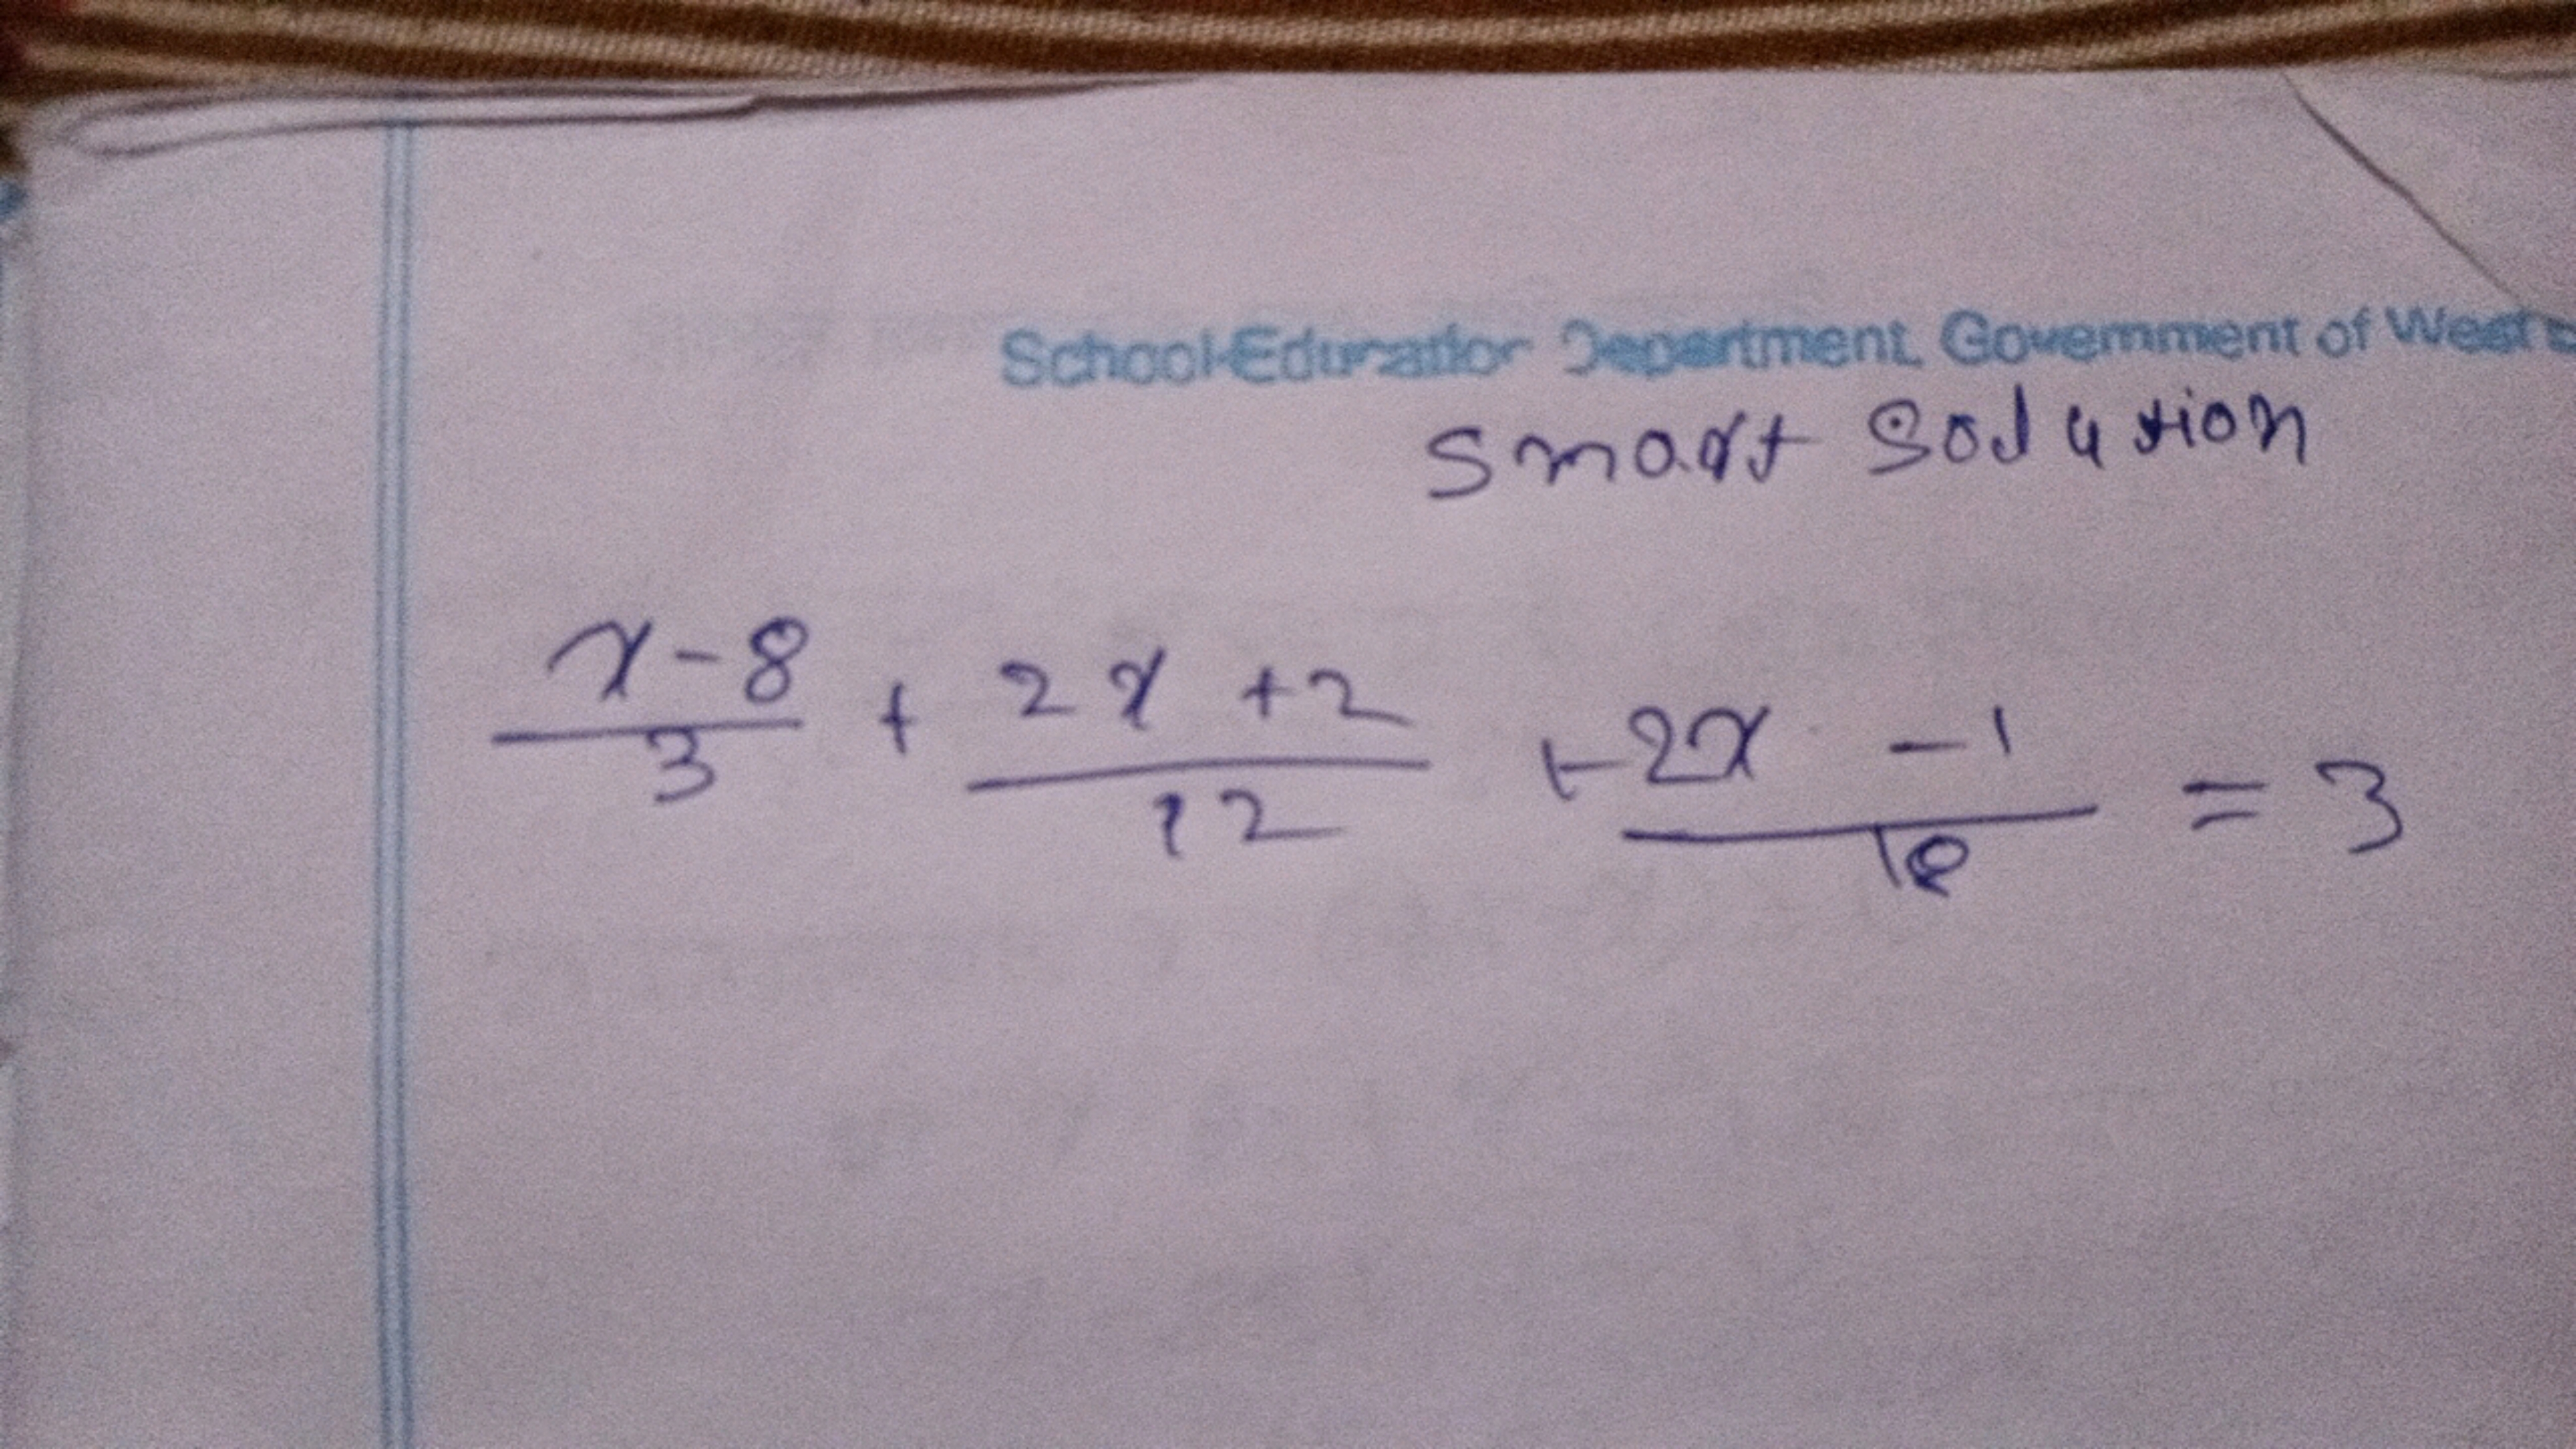 School Education Department, Government of West
smart solution
x-8/3 + 2x+2/12 + 2x-1/18 = 3